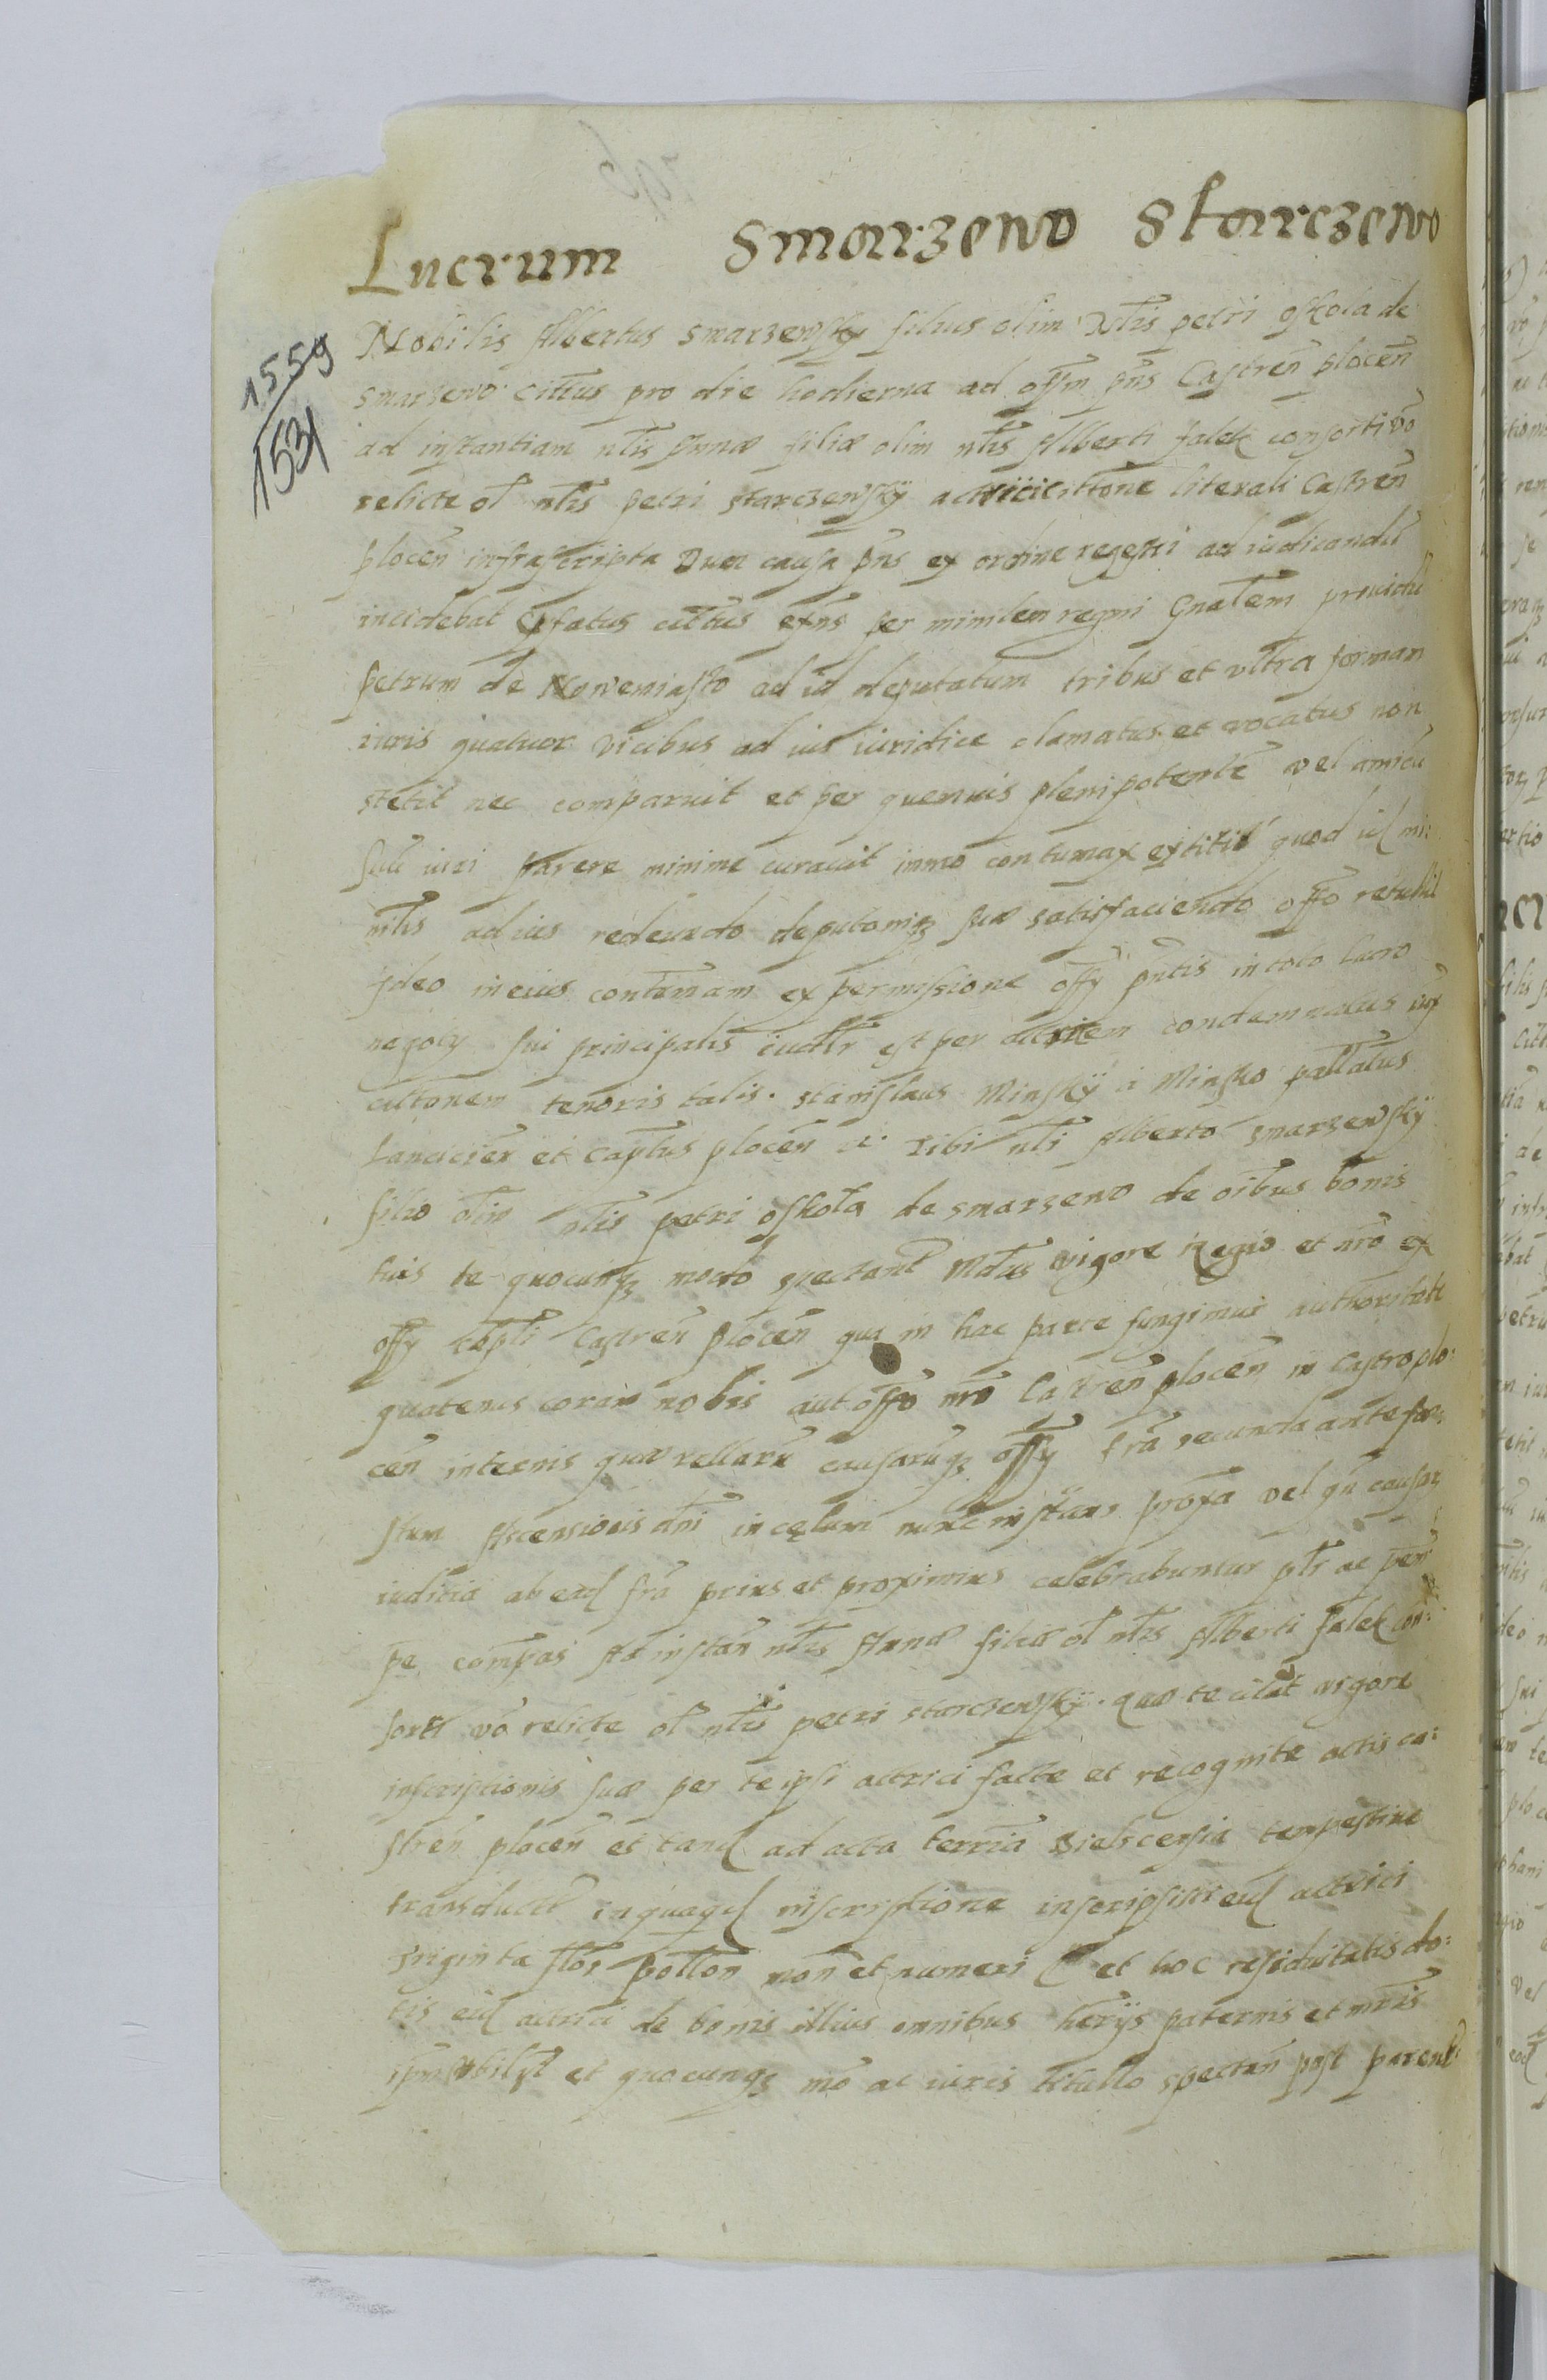 Lucrum Smarzewo Starczewo
1559
1531
Nobilis Albertus Smarzewsky filius olim Nłis petri oskola de
Smarzewo cittus pro die hodierna ad offm pñs Castreñ ploceñ
ad instantiam nłis Annæ filiæ olim nłis Alberti falek consorti vo
relicte oł nłis petri starczewskÿ actricis cittone literali Castreñ
plocen infrascripta Dum causa pñs ex ordine regesti ad iudicandũ
incidebat Epfatus cittus exñs per ministem regni Gnałem providũ
petrum de Nowemiasto ad id deputatum tribus et vltra forman
iuris quatuor vicibus ad ius iuridice clamatus et vocatus non
stetit nec comparuit et per quemvis plenipotentẽ vel amicũ
suũ iuri parere minime curavit immo contumax extitit quod id mi:
nłis ad ius redeundo deputoniqꝫ suæ satisfaciendo offo retulit
jdeo in eius contãmam ex permissione offy pñtis in toto lucro
negocy sui principalis iudłr est per actricem condemnatus iux
cittonem tenoris talis. Stanislaus Minskÿ a Minsko pallatus
Lancicieñ et Captus plocen &. Tibi nłi Alberto Smarzewskÿ
filio olim nłis petri oskola de smarzewo de oibus bonis
tuis te quocunqꝫ modo spectant Mdtus vigore Regio et nro ex
offy captli Castreñ plocen qua in hac parte fungimur authoritate
quatenus coram nobis aut offo nro Castreñ plocen in Castro plo:
ceñ in termis quærellarũ causarũqꝫ offy fra secunda ante fe:
stum Ascensionis dni in cęlum nunc instans proxa vel qñ causar
iuditia ab ead fra prius et proximius celebrabuntur płr ac pem
pe compas Ad instan nłis Annæ filiæ oł nłis Alberti falek con:
sortł vo relicte oł nłis petri starczewskÿ. quæ te citat vigore
inscriptionis suæ per te ipsi actrici facte et recognite actis ca:
streñ plocen et tand ad acta terria Bielscensia tempestive
transducte in quaqd inscriptione inscripsisti eid actrici
triginta flor pollon mon et numeri & et hoc residuitatis do:
tis eid actrici de bonis illius omnibus herÿs paternis et mrnis
et quocunqꝫ mo ac iuris titullo spectan post parent: